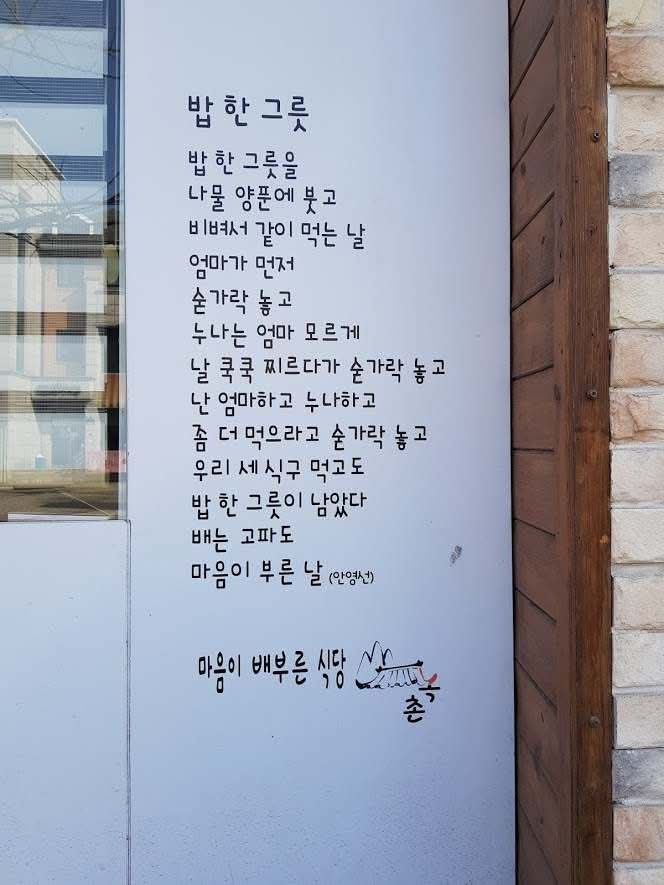 밥 한 그릇
밥 한 그릇을
나물 양푼에 붓고
비벼서 같이 먹는 날
엄마가 먼저
숟가락 놓고
누나는 엄마 모르게
날 쿡쿡 찌르다가 숟가락 놓고
난 엄마하고 누나하고
좀 더 먹으라고 숟가락 놓고
우리 세 식구 먹고도
밥 한 그릇이 남았다
배는 고파도
마음이 부른 날 (안영선)
마음이 배부른 식당
옥
촌